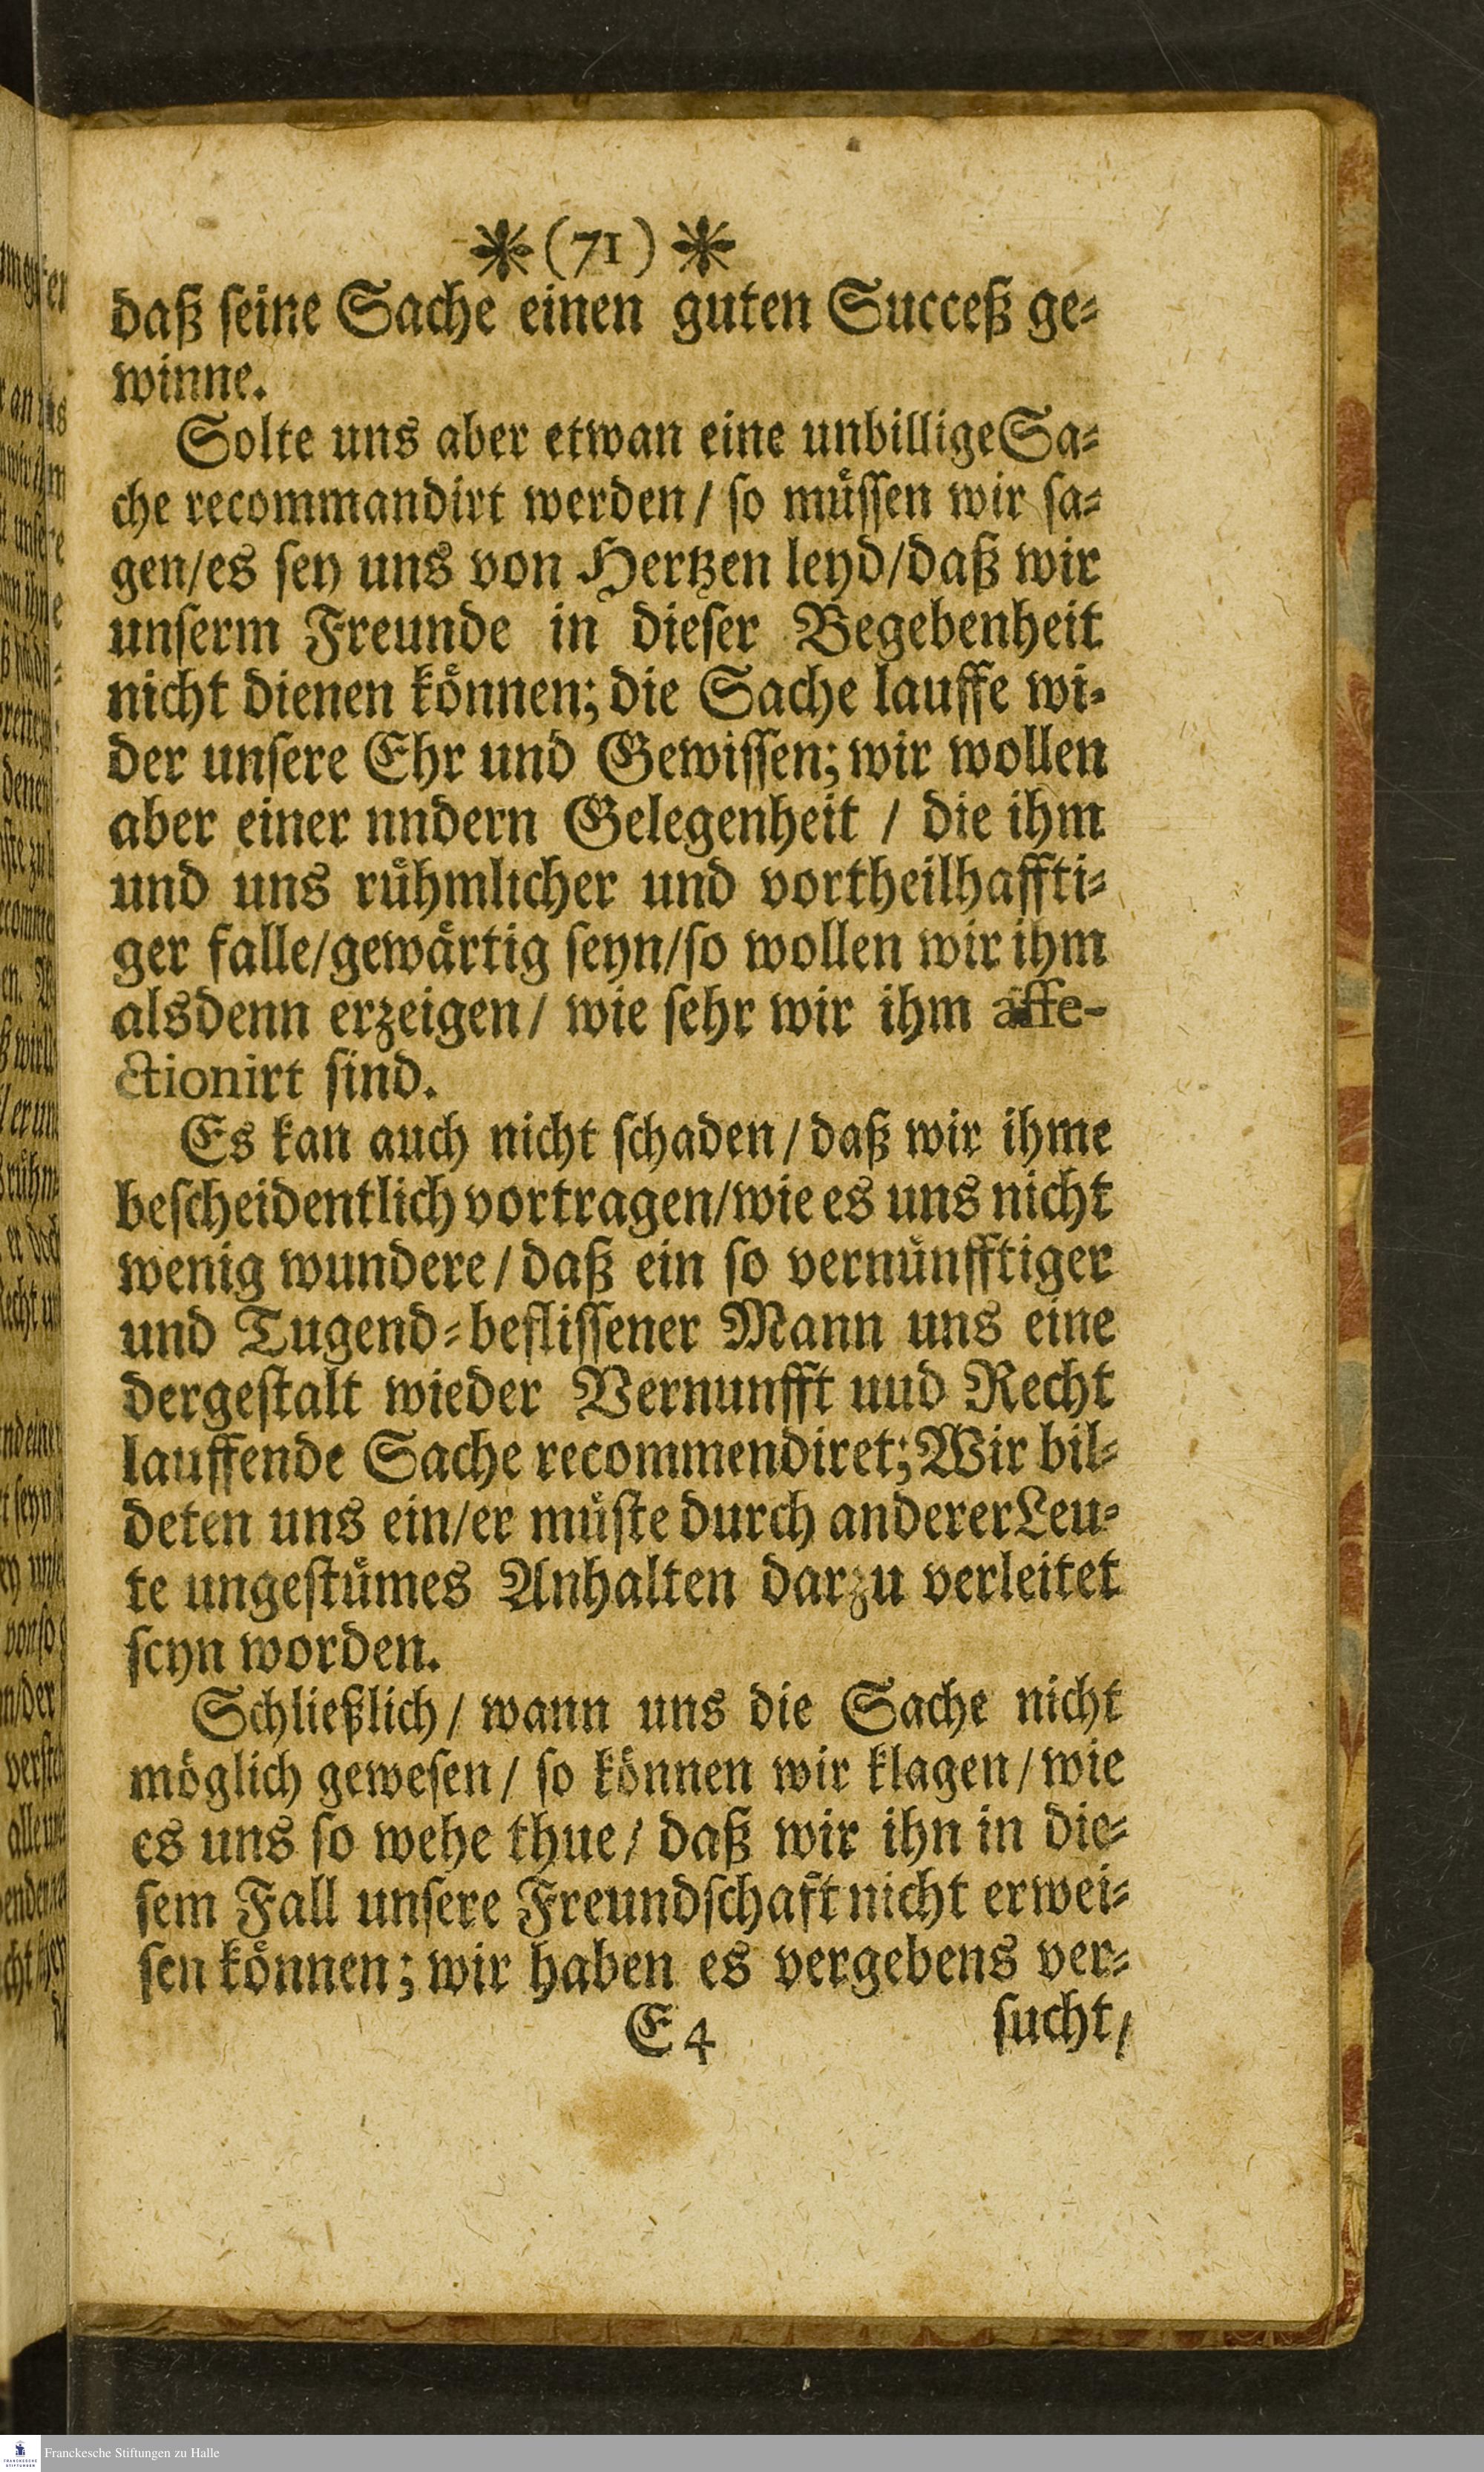 *(71)*
daß ſeine Sache einen guten Succeß ge⸗
winne.
Solte uns aber etwan eine unbillige Sa⸗
che recommandirt werden/ ſo muͤſſen wir ſa⸗
gen/es ſey uns von Hertzen leyd/daß wir
unſerm Freunde in dieſer Begebenheit
nicht dienen koͤnnen; die Sache lauffe wi⸗
der unſere Ehr und Gewiſſen; wir wollen
aber einer nndern Gelegenheit / die ihm
und uns ruͤhmlicher und vortheilhaffti⸗
ger falle/gewaͤrtig ſeyn/ſo wollen wir ihm
alsdenn erzeigen/ wie ſehr wir ihm affe-
ctionirt ſind.
Es kan auch nicht ſchaden/ daß wir ihme
beſcheidentlich vortragen/wie es uns nicht
wenig wundere/ daß ein ſo vernuͤnfftiger
und Tugend⸗befliſſener Mann uns eine
dergeſtalt wieder Vernunfft uud Recht
lauffende Sache recommendiret; Wir bil⸗
deten uns ein/er muͤſte durch anderer Leu⸗
te ungeſtuͤmes Anhalten darzu verleitet
ſeyn worden.
Schließlich/ wann uns die Sache nicht
moͤglich geweſen/ ſo koͤnnen wir klagen/ wie
es uns ſo wehe thue/ daß wir ihn in die⸗
ſem Fall unſere Freundſchaft nicht erwei⸗
ſen koͤnnen; wir haben es vergebens ver⸗
E 4 ſucht/
Franckesche Stiftungen zu Halle